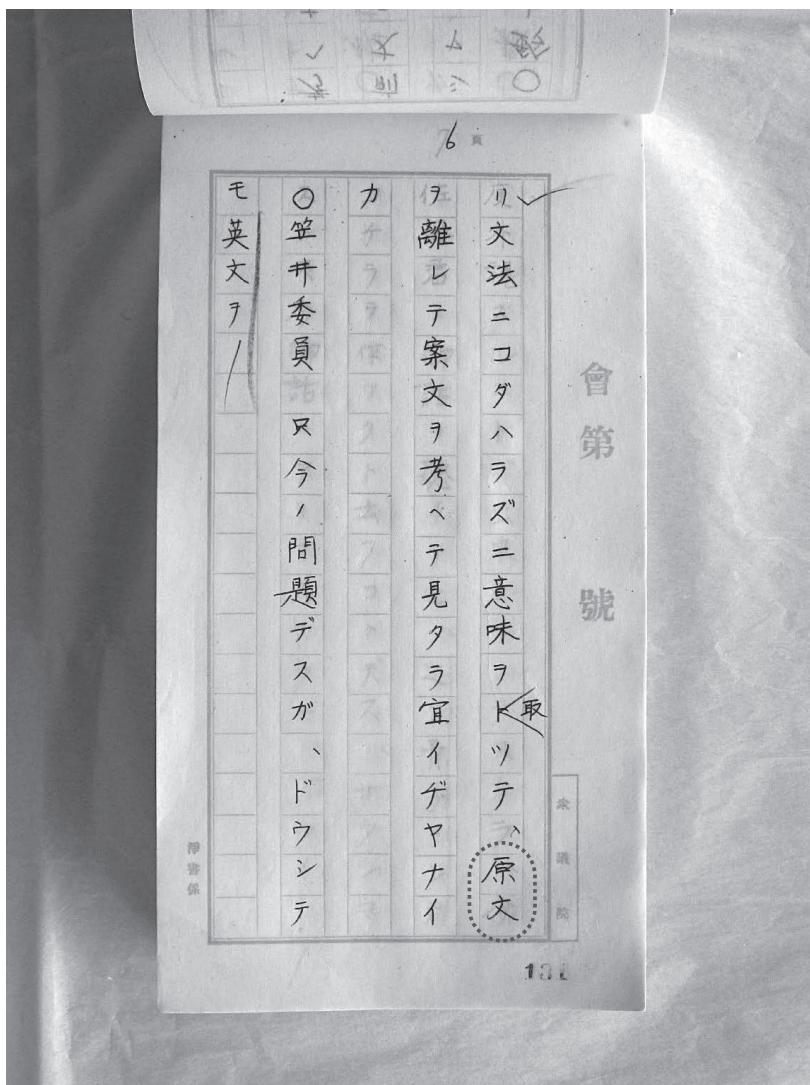 6頁
會第 號
衆議院
リ文法ニコダハラズニ意味ヲトツテ、原文
取
ヲ離レテ案文ヲ考ヘテ見タラ宜イヂヤナイ
カ
〇笠井委員 只今ノ問題デスガ、ドウシテ
モ英文ヲ
淨書係